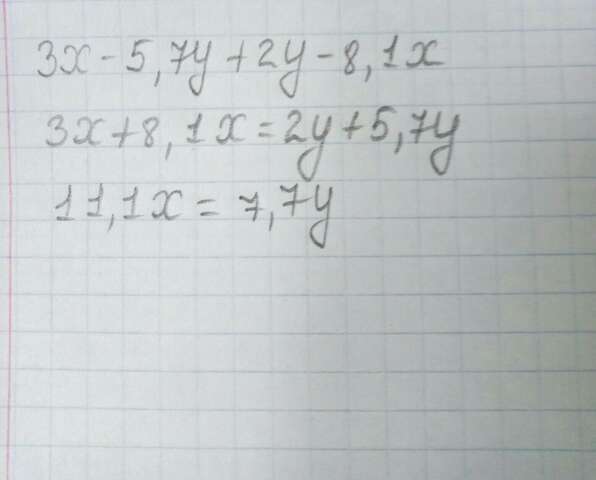 3x - 5,7y + 2y - 8,1x
3x + 8,1x = 2y + 5,7y
11,1x = 7,7y